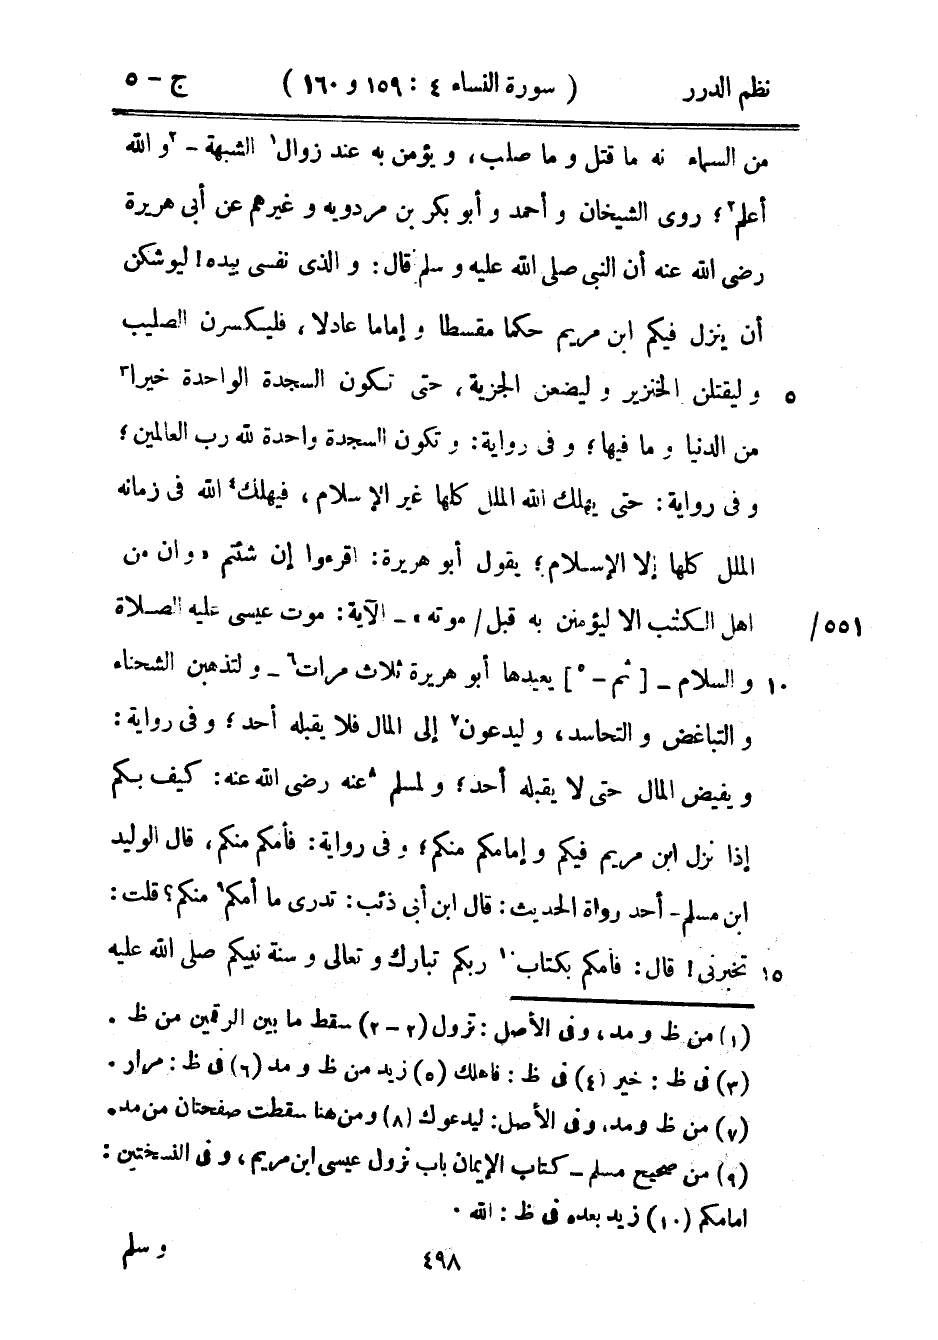 نظم الدرر ( سورة النساء ٤ : ١٥٩ و ١٦٠ ) ج - ٥
من السماء نه ما قتل و ما صلب، و يؤمن به عند زوال١ الشبهة ـ ٢و الله
أعلم٢؛ روى الشيخان و أحمد و أبو بكر بن مردويه و غيرهم عن أبى هريرة
رضى الله عنه أن النبى صلى الله عليه و سلم قال: و الذى نفسى بيده! ليوشكن
أن ينزل فيكم ابن مريم حكما مقسطا و إماما عادلا، فليكسرن الصليب
٥ و ليقتلن الخنزير و ليضعن الجزية، حتى تكون السجدة الواحدة خيرا٣
من الدنيا و ما فيها؛ و فى رواية: و تكون السجدة واحدة لله رب العالمين؛
و فى رواية: حتى يهلك الله الملل كلها غير الإسلام، فيهلك٤ الله فى زمانه
الملل كلها إلا الإسلام؛ يقول أبو هريرة: اقرءوا إن شئتم «وان من
اهل الكتٰب الا ليؤمنن به قبل/ موته» ـ الآية: موت عيسى عليه الصلاة /٥٥١
١٠ و السلام ـ [ ثم ـ ٥] يعيدها أبو هريرة ثلاث مرات٦ ـ و لتذهبن الشحناء
و التباغض و التحاسد، و ليدعون٧ إلى المال فلا يقبله أحد؛ و فى رواية:
و يفيض المال حتى لا يقبله أحد؛ و لمسلم ٨عنه رضى الله عنه: كيف بكم
إذا نزل ابن مريم فيكم و إمامكم منكم؛ و فى رواية: فأمكم منكم، قال الوليد
ابن مسلم - أحد رواة الحديث: قال ابن أبى ذئب: تدرى ما أمكم٩ منكم؟ قلت:
١٥ تخبرنى! قال: فأمكم بكتاب١٠ ربكم تبارك و تعالى و سنة نبيكم صلى الله عليه
(١) من ظ و مد، و فى الأصل: نزول (٢ - ٢) سقط ما بين الرقمين من ظ .
(٣) فى ظ : خير (٤) فى ظ : فاهلك (٥) زيد من ظ و مد (٦) فى ظ : مرار .
(٧) من ظ و مد، و فى الأصل: ليدعوك (٨) و من هنا سقطت صفحتان من مد.
(٩) من صحيح مسلم ـ كتاب الإيمان باب نزول عيسى ابن مريم، و فى النسختين:
امامكم (١٠) زيد بعده فى ظ : الله .
و سلم
٤٩٨